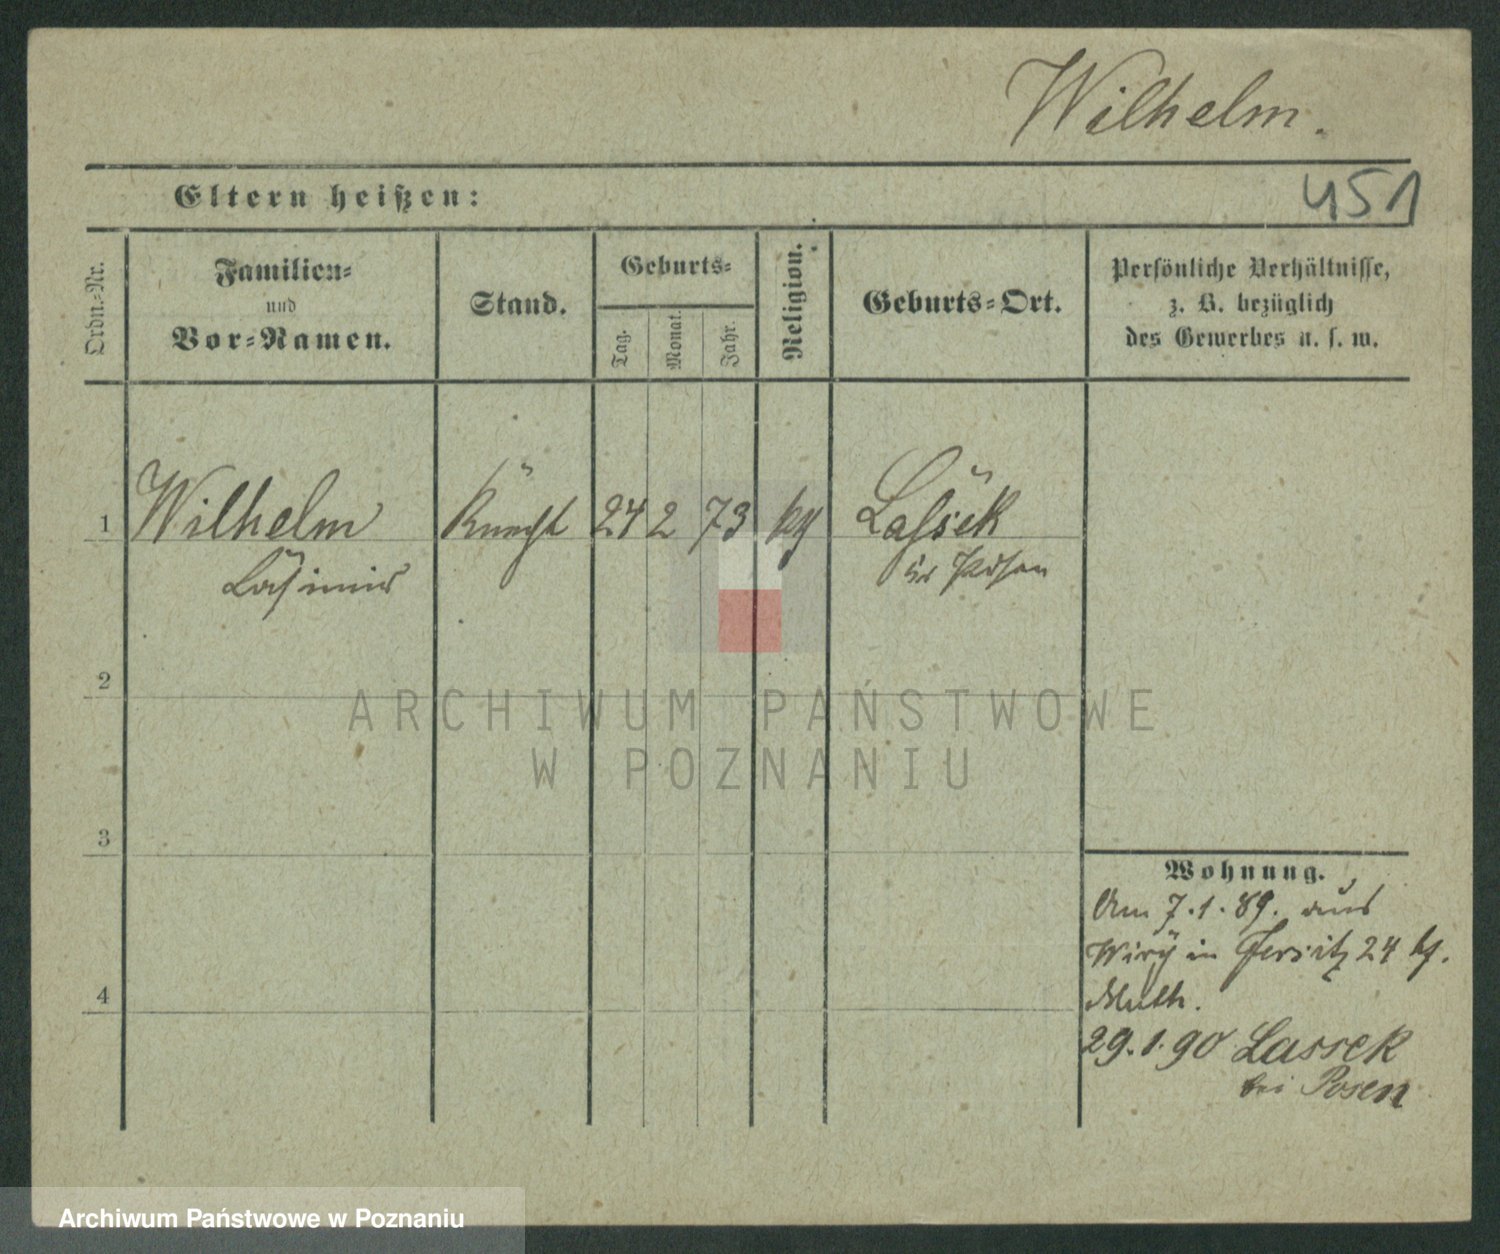 Wilhelm.
Eltern heißen:
451
Ordn.-Nr.
Familien-
und
Vor-Namen.
Stand.
Geburts-
Tag.
Monat.
Jahr.
Religion.
Geburts-Ort.
Persönliche Verhältnisse,
z. B. bezüglich
des Gewerbes u. s. w.
1 Wilhelm Knecht 24 2 73 Lassek
Casimir Posen
2
3
4
Wohnung.
Am 7.1.89. aus
Wiry in Jersitz 24
29.1.90 Lassek
bei Posen
ARCHIWUM PAŃSTWOWE
W POZNANIU
Archiwum Państwowe w Poznaniu